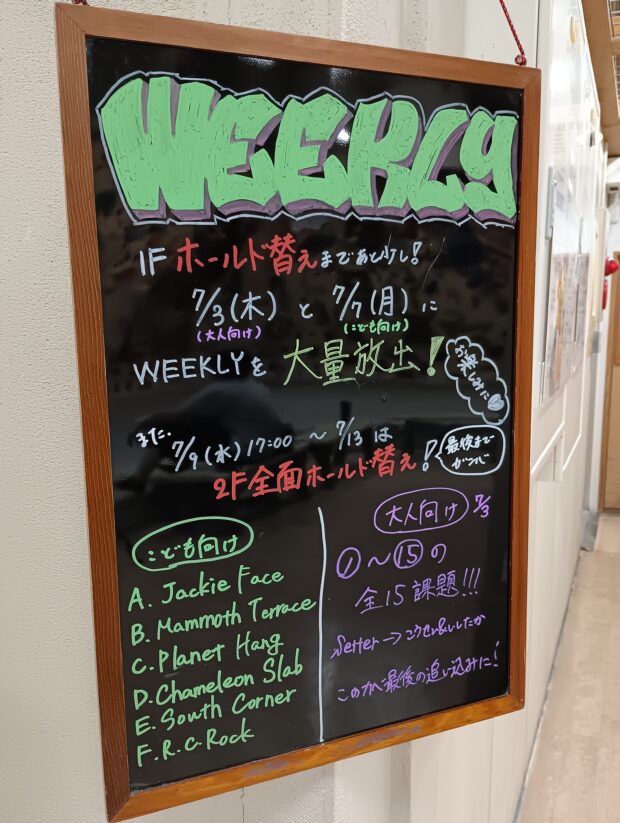 WEEKLY
1F ホールド替えまであと少し!
7/3(木) と 7/7(月)に
(大人向け) (こども向け)
WEEKLYを 大量放出!
お楽しみに♡
また、7/9(水)17:00 ~ 7/13 は
2F全面ホールド替え!
最後まで
ガンバ
こども向け
A. Jackie Face
B. Mammoth Terrace
C. Planet Hang
D. Chameleon Slab
E. South Corner
F. R.C. Rock
大人向け 7/3
①~⑮の
全15課題!!!
Setter→こうせい
最後の追い込みに!